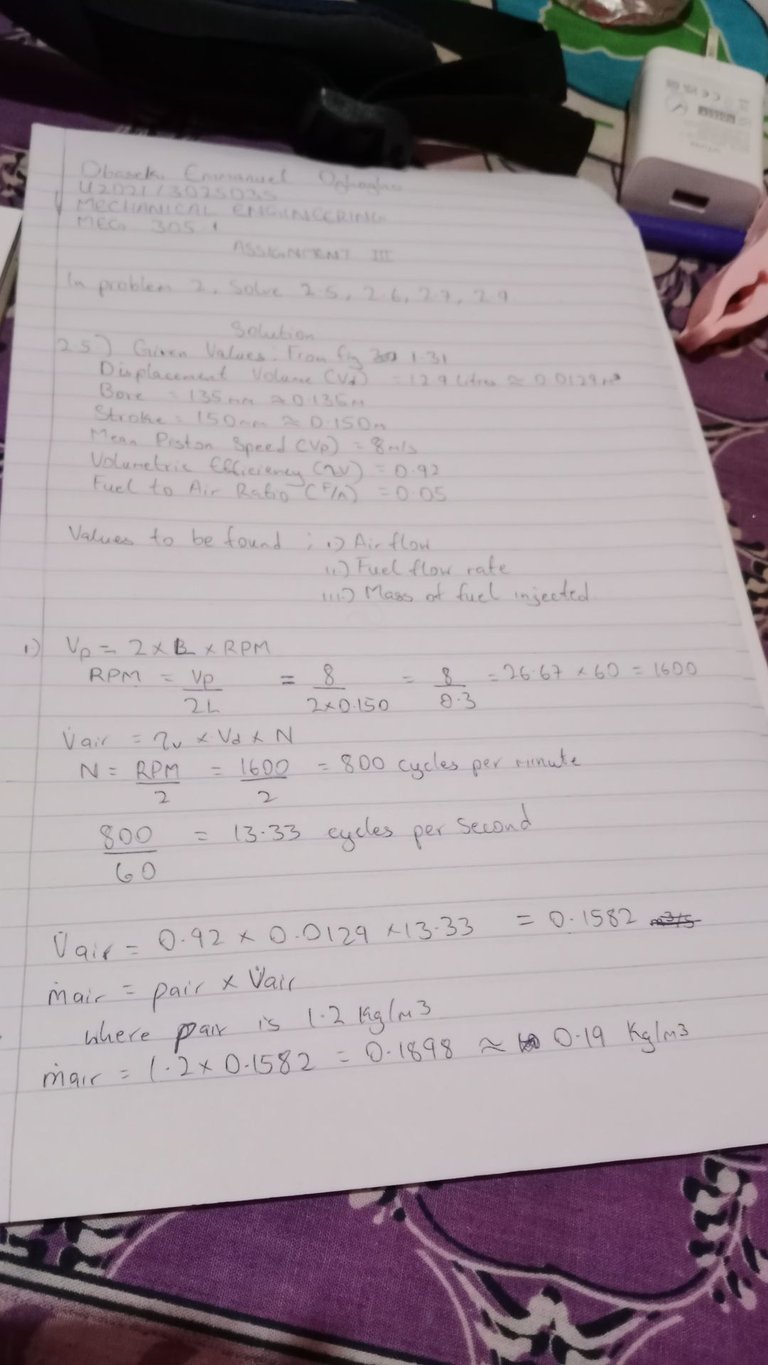 Obaseki Emmanuel
U2021/3025035
MECHANICAL ENGINEERING
MEG 305.1
ASSIGNMENT III
In problem 2, Solve 2.5, 2.6, 2.7, 2.9
Solution
2.5) Given Values. From fig 1.31
Displacement Volume (Vd) = 12.9 Litres ≈ 0.0129m³
Bore = 135mm ≈ 0.135m
Stroke = 150mm ≈ 0.150m
Mean Piston Speed (Vp) = 8m/s
Volumetric Efficiency (ηv) = 0.92
Fuel to Air Ratio (F/A) = 0.05
Values to be found ; i) Air flow
ii) Fuel flow rate
iii) Mass of fuel injected
i) Vp = 2 × L × RPM
RPM = Vp/2L = 8/2×0.150 = 8/0.3 = 26.67 × 60 = 1600
V̇air = ηv × Vd × N
N = RPM/2 = 1600/2 = 800 cycles per minute
800/60 = 13.33 cycles per second
V̇air = 0.92 × 0.0129 × 13.33 = 0.1582 m3/s
ṁair = ρair × V̇air
where ρair is 1.2 Kg/m3
ṁair = 1.2 × 0.1582 = 0.1898 ≈ 0.19 Kg/m3